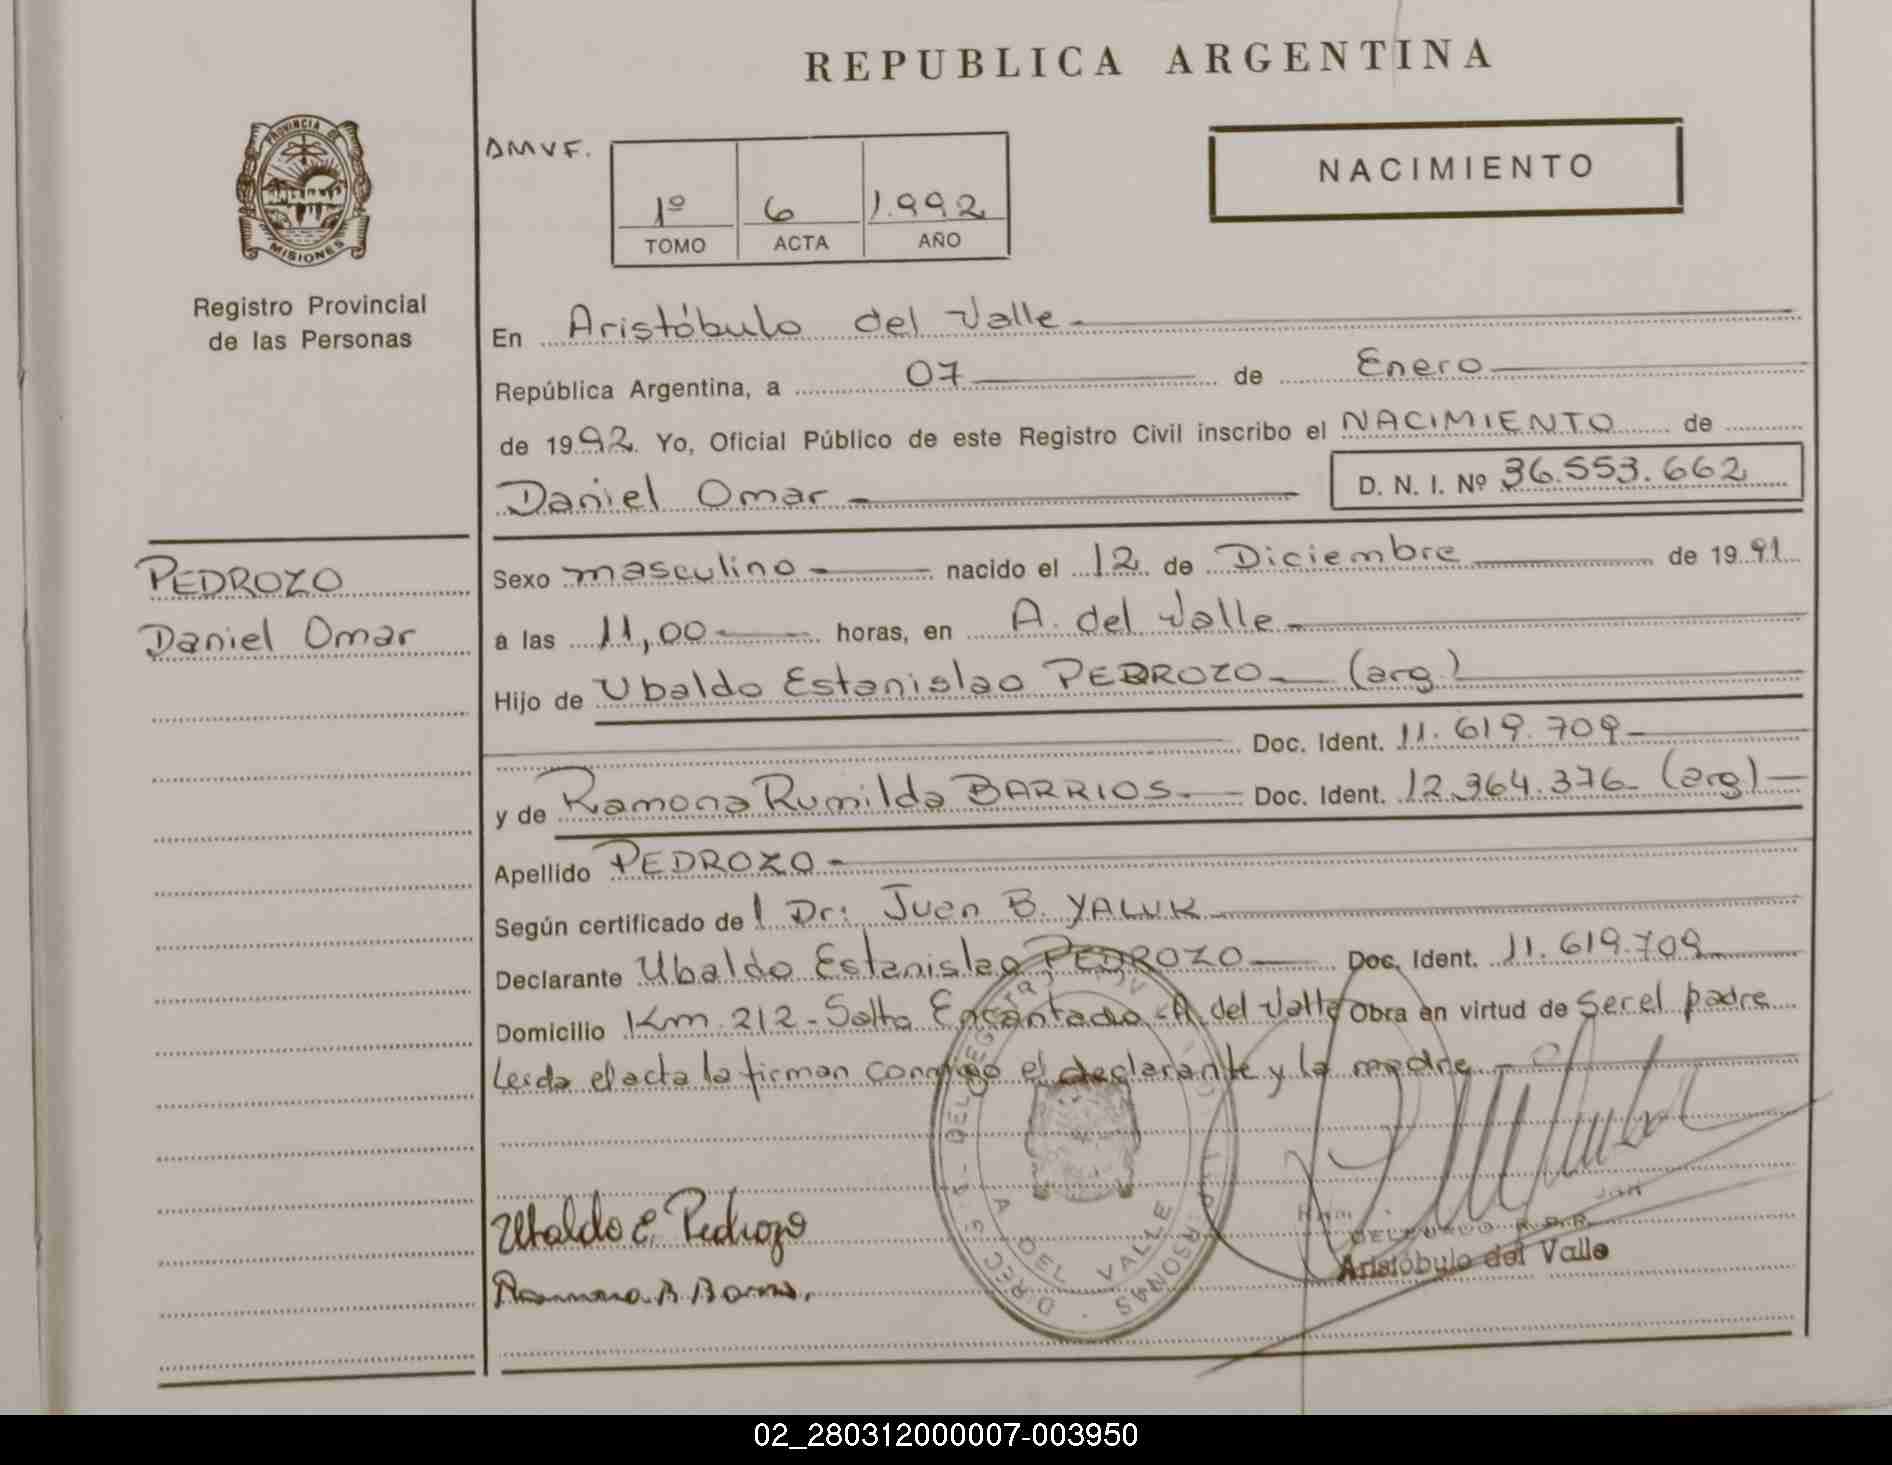 REPUBLICA ARGENTINA
PROVINCIA DE
MISIONES
Registro Provincial
de las Personas
DMVF.
1º 6 1.992
TOMO ACTA AÑO
NACIMIENTO
En Aristóbulo del Valle
República Argentina, a 07 de Enero
de 1992 Yo, Oficial Público de este Registro Civil inscribo el NACIMIENTO de
Daniel Omar D. N. I. Nº 36.553.662
PEDROZO
Daniel Omar
Sexo masculino nacido el 12 de Diciembre de 1991
a las 11,00 horas, en A. del Valle
Hijo de Ubaldo Estanislao PEDROZO (arg.)
Doc. Ident. 11.619.709
y de Ramona Rumilda BARRIOS Doc. Ident. 12.364.376 (arg)
Apellido PEDROZO
Según certificado del Dr: Juan B. YALUK
Declarante Ubaldo Estanislao PEDROZO Doc. Ident. 11.619.709
Domicilio Km 212 - Salto Encantado - A. del Valle Obra en virtud de ser el padre
Leida el acta la firman conmigo el declarante y la madre
Ubaldo E. Pedrozo
DELEGADO R.P.P.
Aristóbulo del Valle
A DEL VALLE
02_280312000007-003950